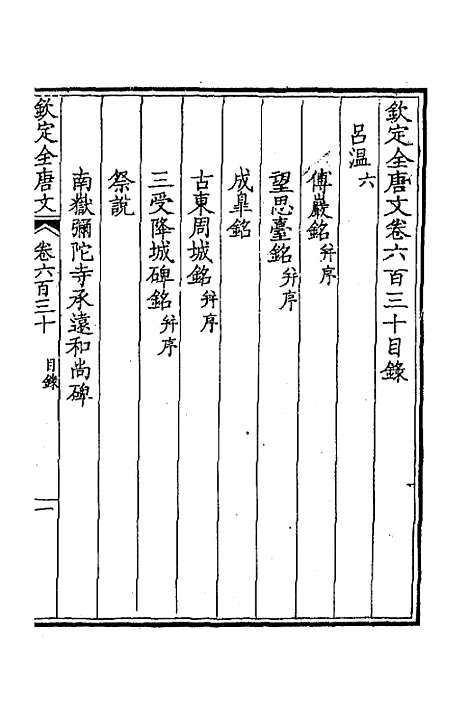 欽定全唐文卷六百三十目錄
呂溫六
傅巖銘并序
望思臺銘并序
成臯銘
古東周城銘并序
三受降城碑銘并序
祭說
南嶽彌陀寺承遠和尚碑
欽定全唐文 卷六百三十 目錄 一